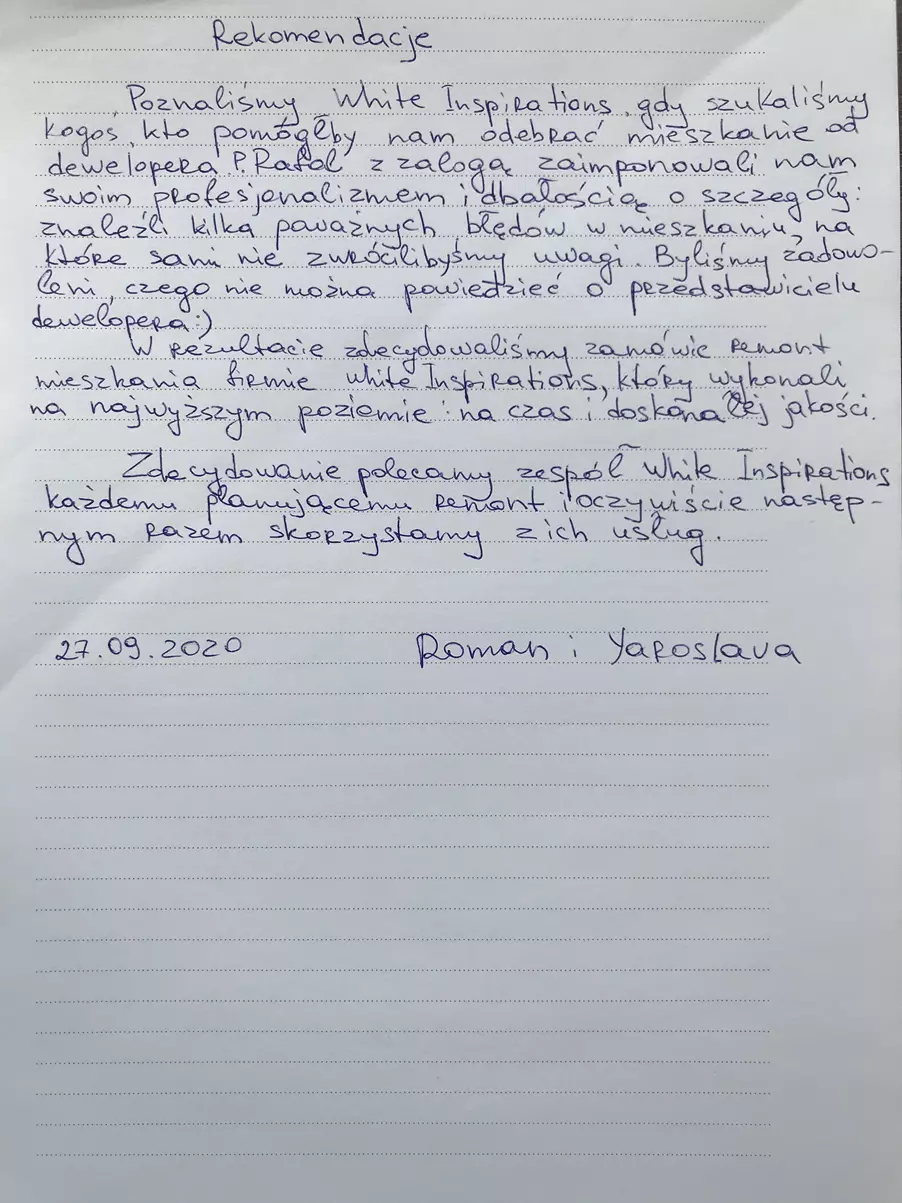 Rekomendacje
Poznaliśmy White Inspirations, gdy szukaliśmy
kogoś, kto pomógłby nam odebrać mieszkanie od
dewelopera. P. Rafał z załogą zaimponowali nam
swoim profesjonalizmem i dbałością o szczegóły:
znaleźli kilka poważnych błędów w mieszkaniu, na
które sami nie zwrócilibyśmy uwagi. Byliśmy zadowo-
leni, czego nie można powiedzieć o przedstawicielu
dewelopera:)
W rezultacie zdecydowaliśmy zamówić remont
mieszkania firmie White Inspirations, który wykonali
na najwyższym poziemie: na czas i doskonałej jakości.
Zdecydowanie polecamy zespół White Inspirations
każdemu planującemu remont i oczywiście następ-
nym razem skorzystamy z ich usług.
27.09.2020 Roman i Yaroslava